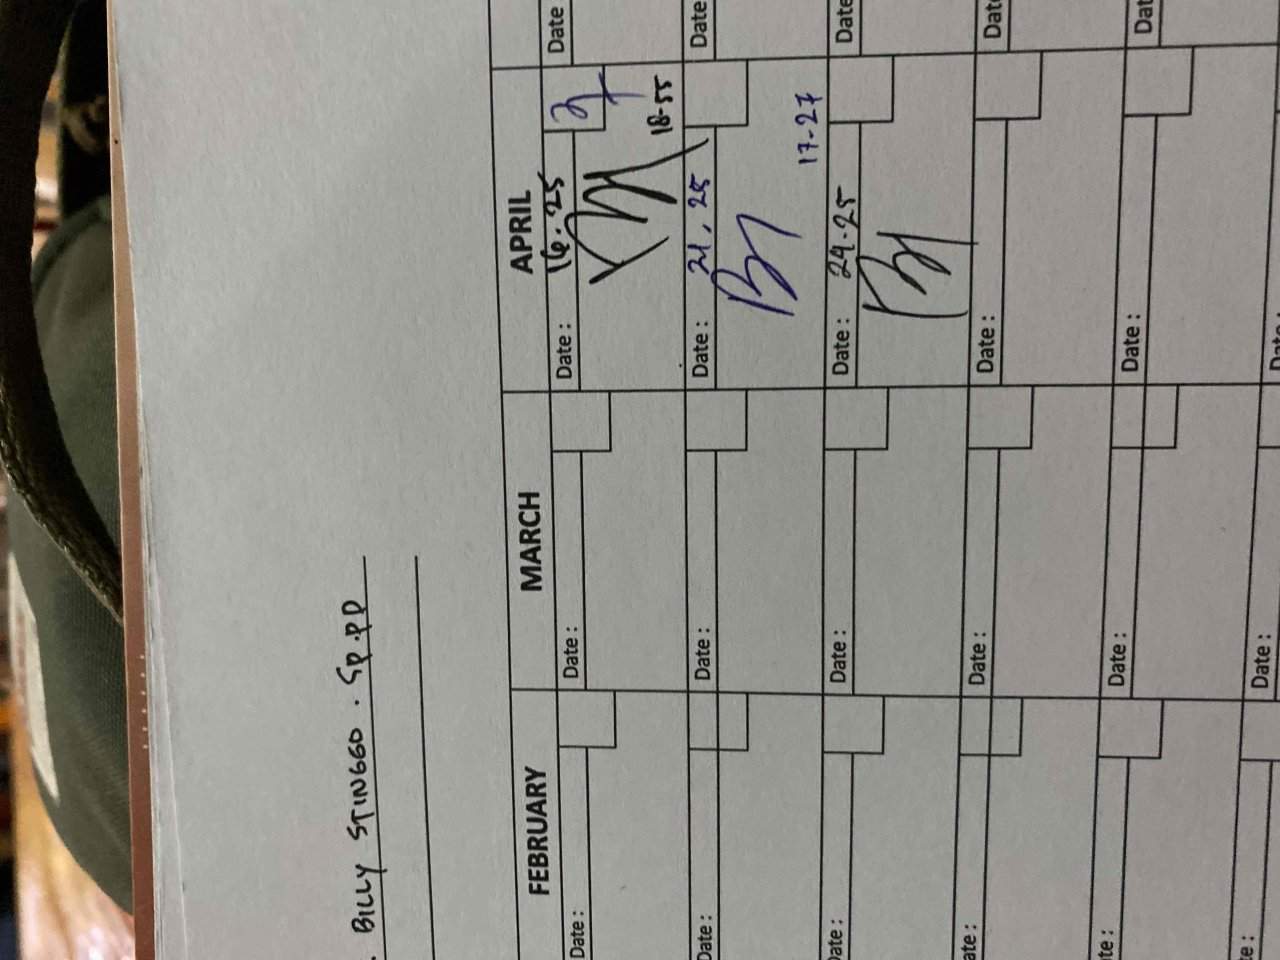 BILLY STINGGO . Sp.PD
FEBRUARY MARCH APRIL
Date : Date : Date : 16.25 Date
18-55
Date : Date : Date : 21, 25 Date
17-27
Date : Date : Date : 24.25 Date
Date : Date : Date : Date
Date : Date : Date : Dat
Date : Date :